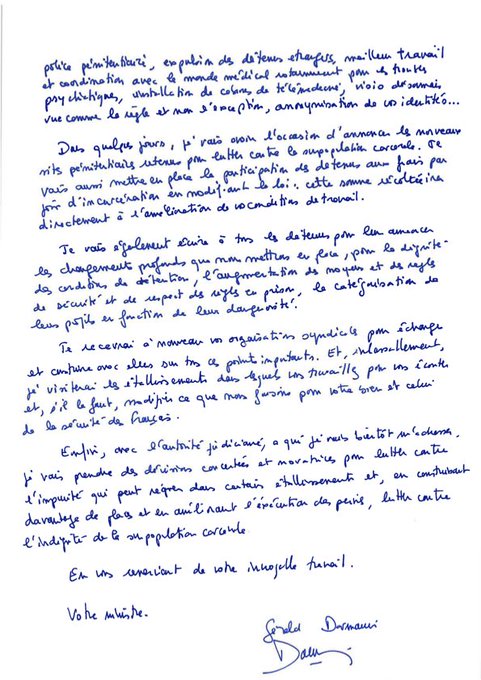 police pénitentiaire, expulsion des détenus étrangers, meilleur travail
et coordination avec le monde médical notamment pour les troubles
psychiatriques, installation de cabines de télémédecine, visio désormais
vue comme la règle et non l'exception, anonymisation de vos identités...
Dans quelques jours, j'aurais l'occasion d'annoncer les nouveaux
sites pénitentiaires retenus pour lutter contre la surpopulation carcérale. Je
vais aussi mettre en place la participation des détenus aux frais par
jour d'incarcération en modifiant la loi : cette somme récoltée ira
directement à l'amélioration de vos conditions de travail.
Je vais également écrire à tous les détenus pour leur annoncer
les changements profonds que nous mettrons en place, pour la dignité
des conditions de détention, l'augmentation des moyens et des règles
de sécurité et de respect des règles en prison, la catégorisation de
leurs profils en fonction de leur dangerosité.
Je recevrai à nouveau vos organisations syndicales pour échanger
et construire avec elles sur tous ces points importants. Et, inlassablement,
je visiterai les établissements dans lesquels vous travaillez pour vous écouter
et, s'il le faut, modifier ce que nous faisons pour votre bien et celui
de la sécurité des Français.
Enfin, avec l'autorité judiciaire, à qui je vais bientôt m'adresser,
je vais prendre des décisions concrètes et novatrices pour lutter contre
l'impunité qui peut régner dans certains établissements et, en construisant
davantage de places et en améliorant l'exécution des peines, lutter contre
l'indignité de la surpopulation carcérale.
En vous remerciant de votre incroyable travail.
Votre ministre.
Gérald Darmanin